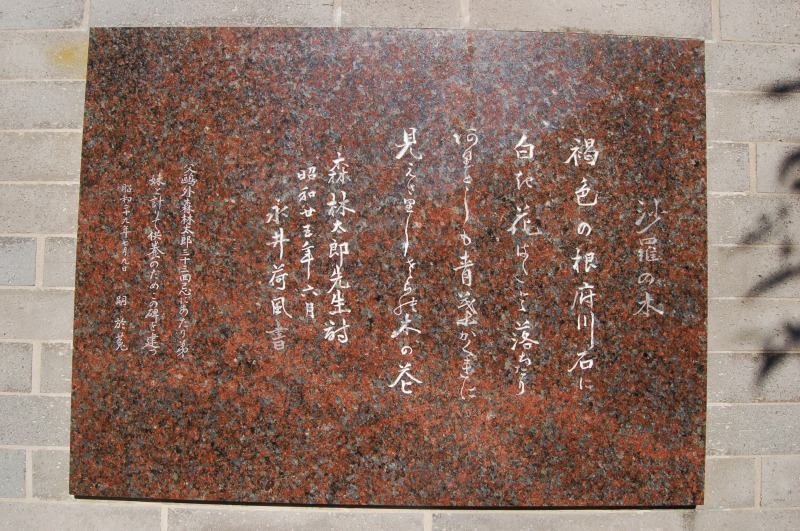 沙羅の木
褐色の根府川石に
白き花はたと落ちたり
ありとしも青葉がくれに
見えざりしさらの木の花
森林太郎先生詩
昭和廿五年六月
永井荷風書
父鴎外森林太郎三十三回忌にあたり弟
妹と計り供養のためこの碑を建つ
昭和二十九年七月九日
嗣 於菟